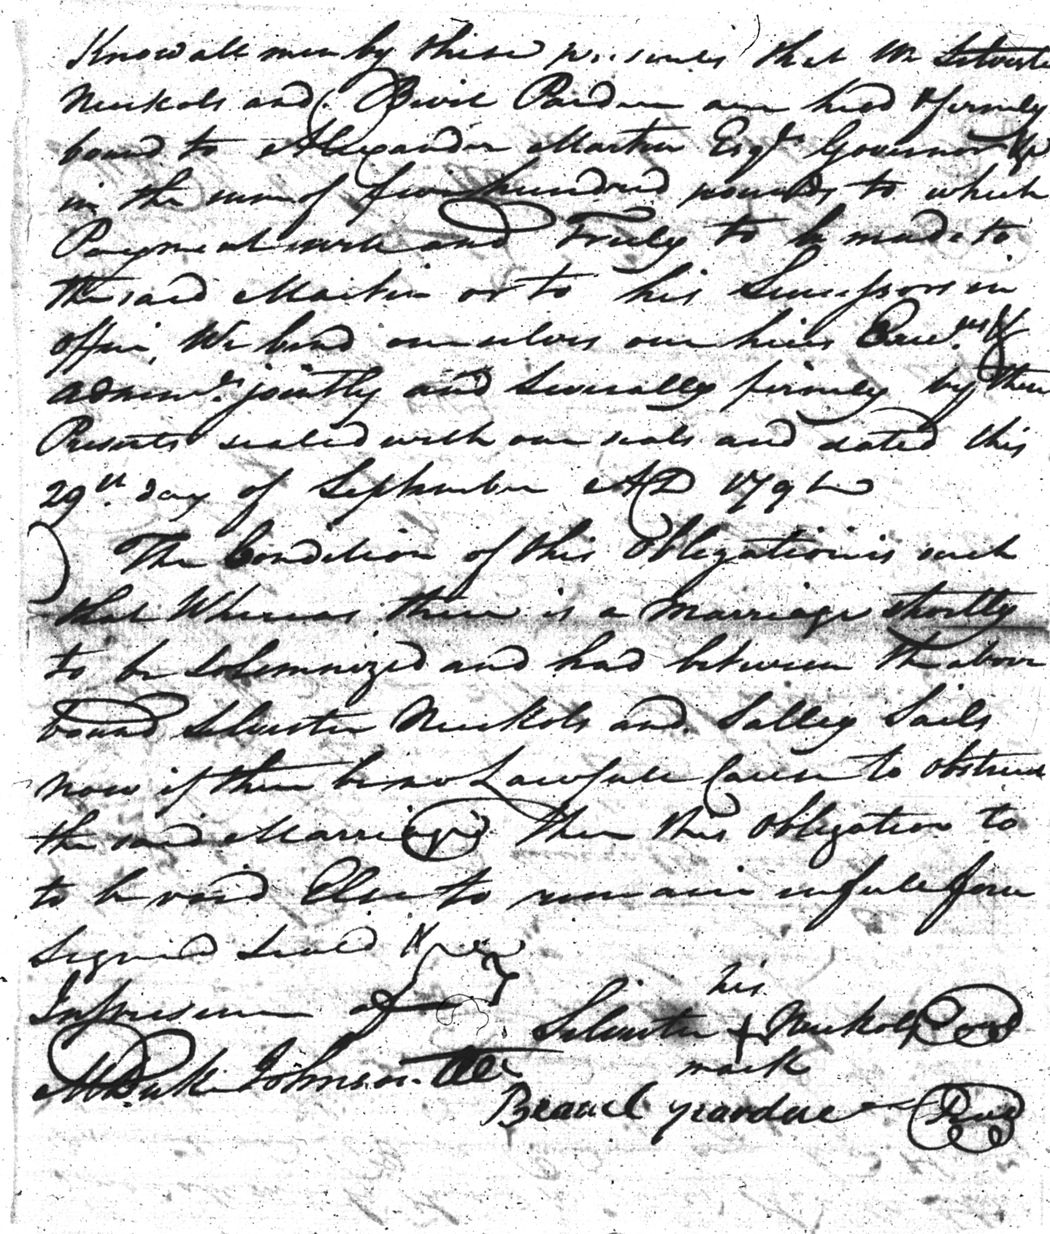 Know all men by these presents that We Silvester
Nuckols and Bivil Pardue are held & firmly
bound to Alexander Martin Esqr. Governor &c
in the sum of five hundred pounds to which
Payment well and Truly to be made to
the said Martin or to his Successors in
Office, We bind ourselves our heirs Exec.rs &
Admin.rs jointly and Severally firmly by these
Presents sealed with our seals and dated this
29th day of September AD 179
The Condition of this obligation is such
that Whereas there is a Marriage shortly
to be Solemnized and had between the above
bound Silvester Nuckols and Salley Sails
now if there be no Lawfull Cause to obstruct
the said Marriage Then this Obligation to
to be void Else to remain in full force
Signed Seald &
In presence of
his
Silvester + Nuckols Seal
mark
Johnson
pardue Seal